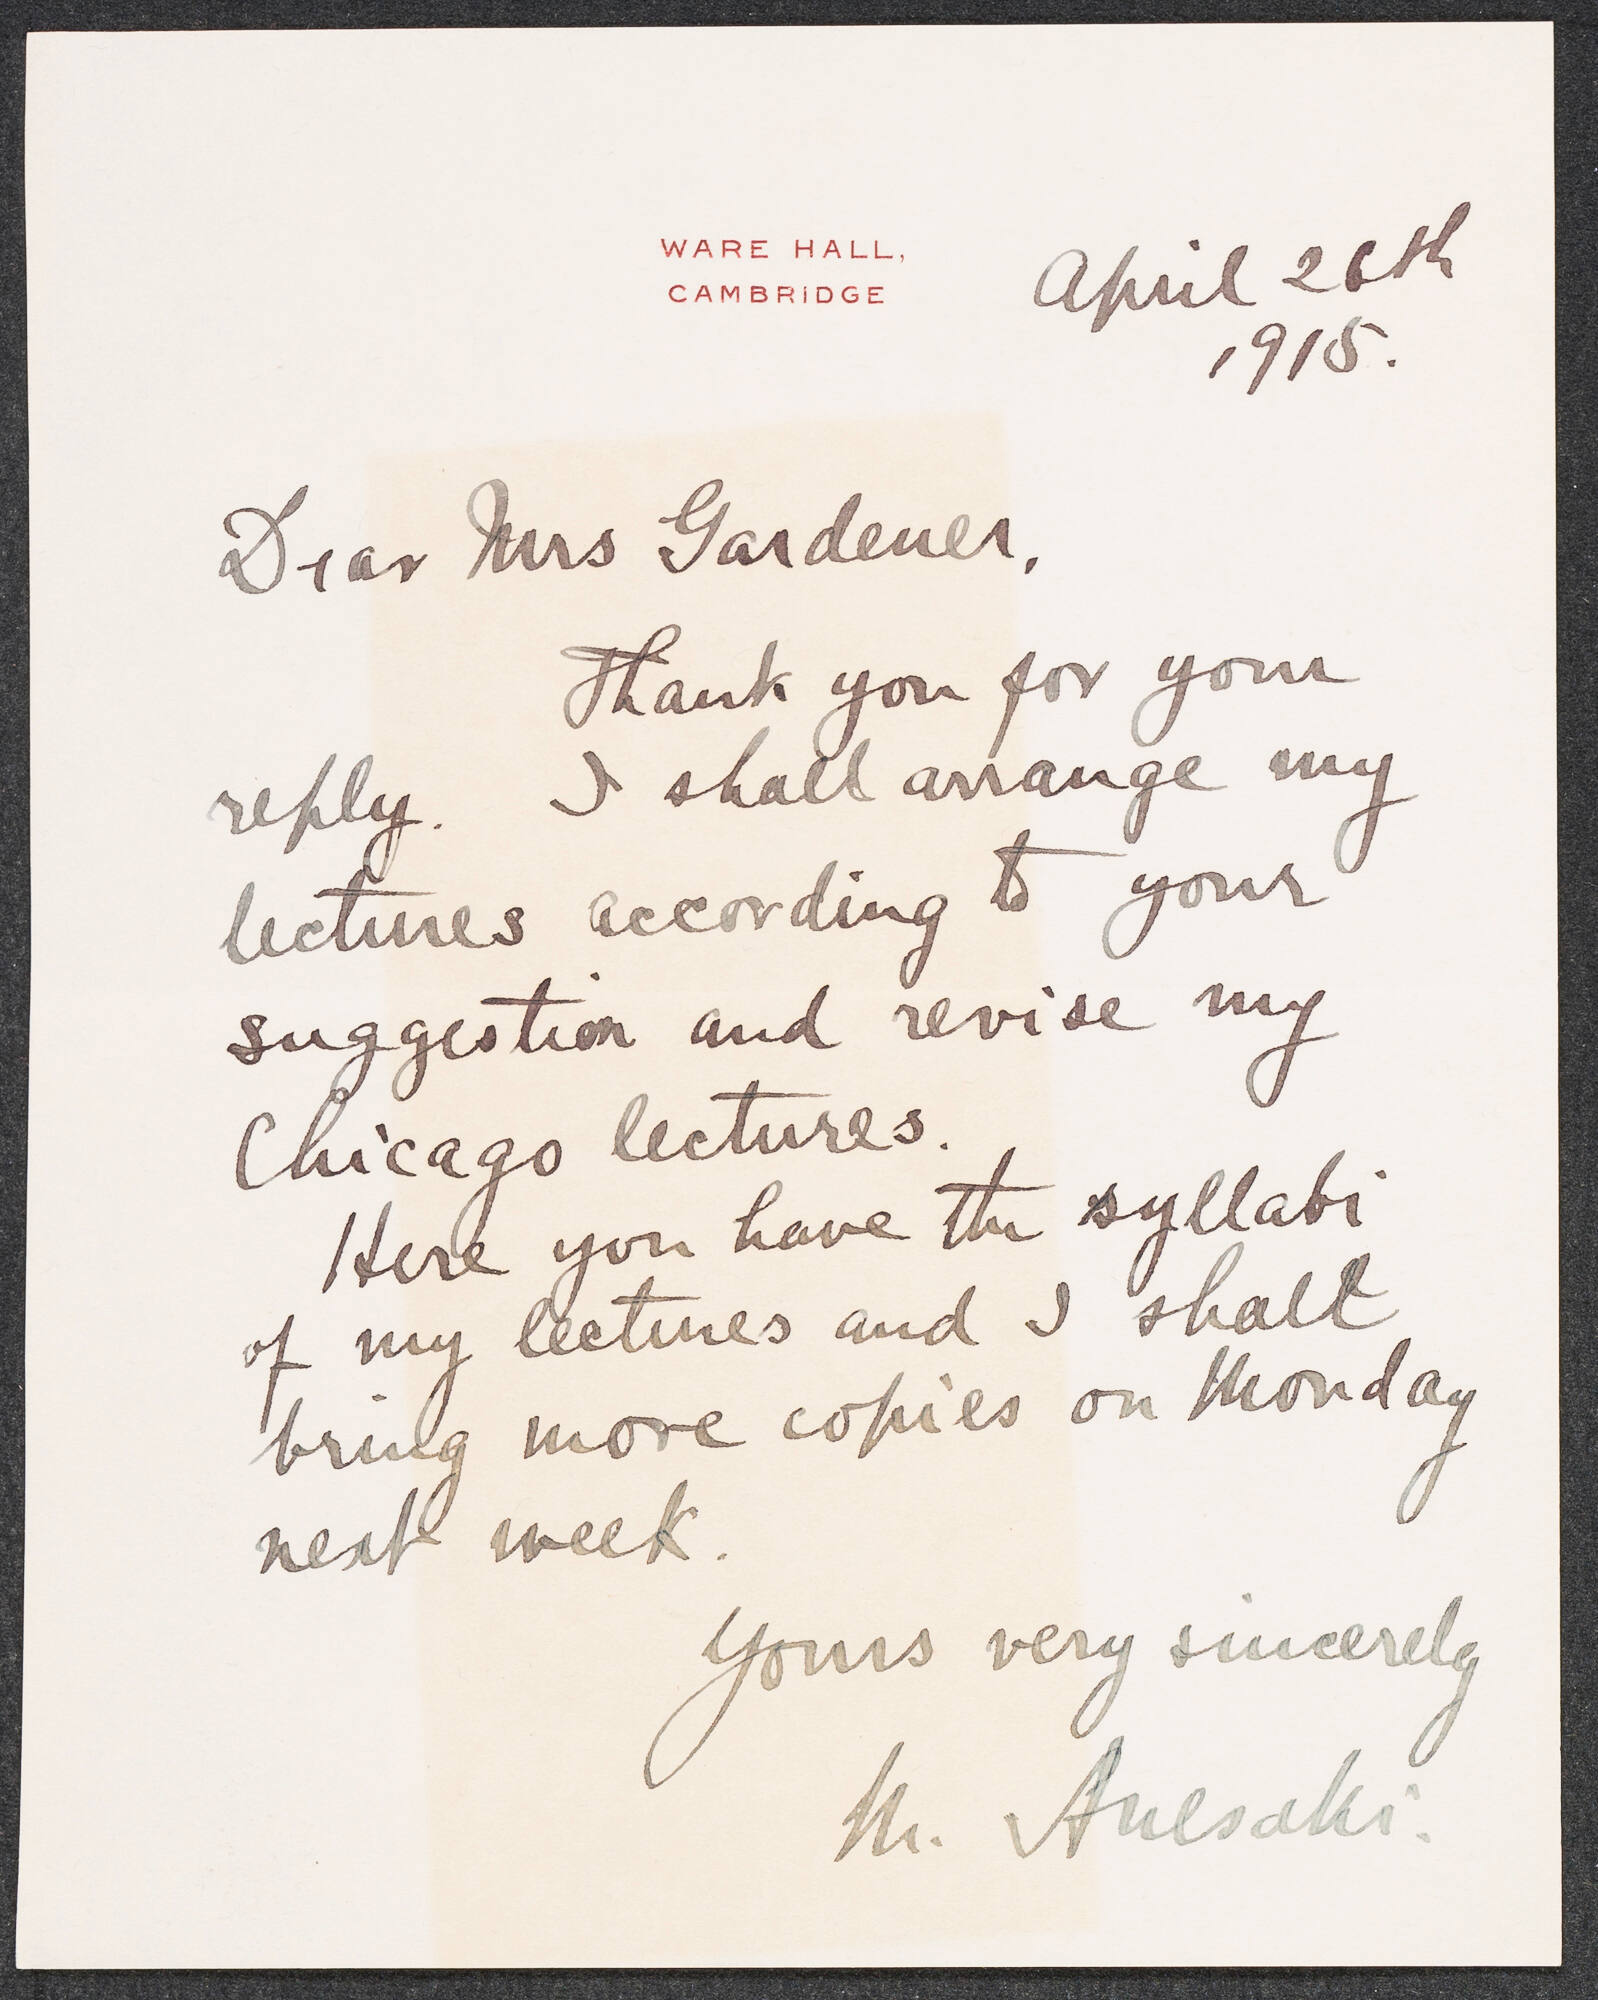 WARE HALL,
CAMBRIDGE
April 26th
1915.
Dear Mrs Gardener,
Thank you for your
reply. I shall arrange my
lectures according to your
suggestion and revise my
Chicago lectures.
Here you have the syllabi
of my lectures and I shall
bring more copies on Monday
next week.
Yours very sincerely
M. Anesaki.